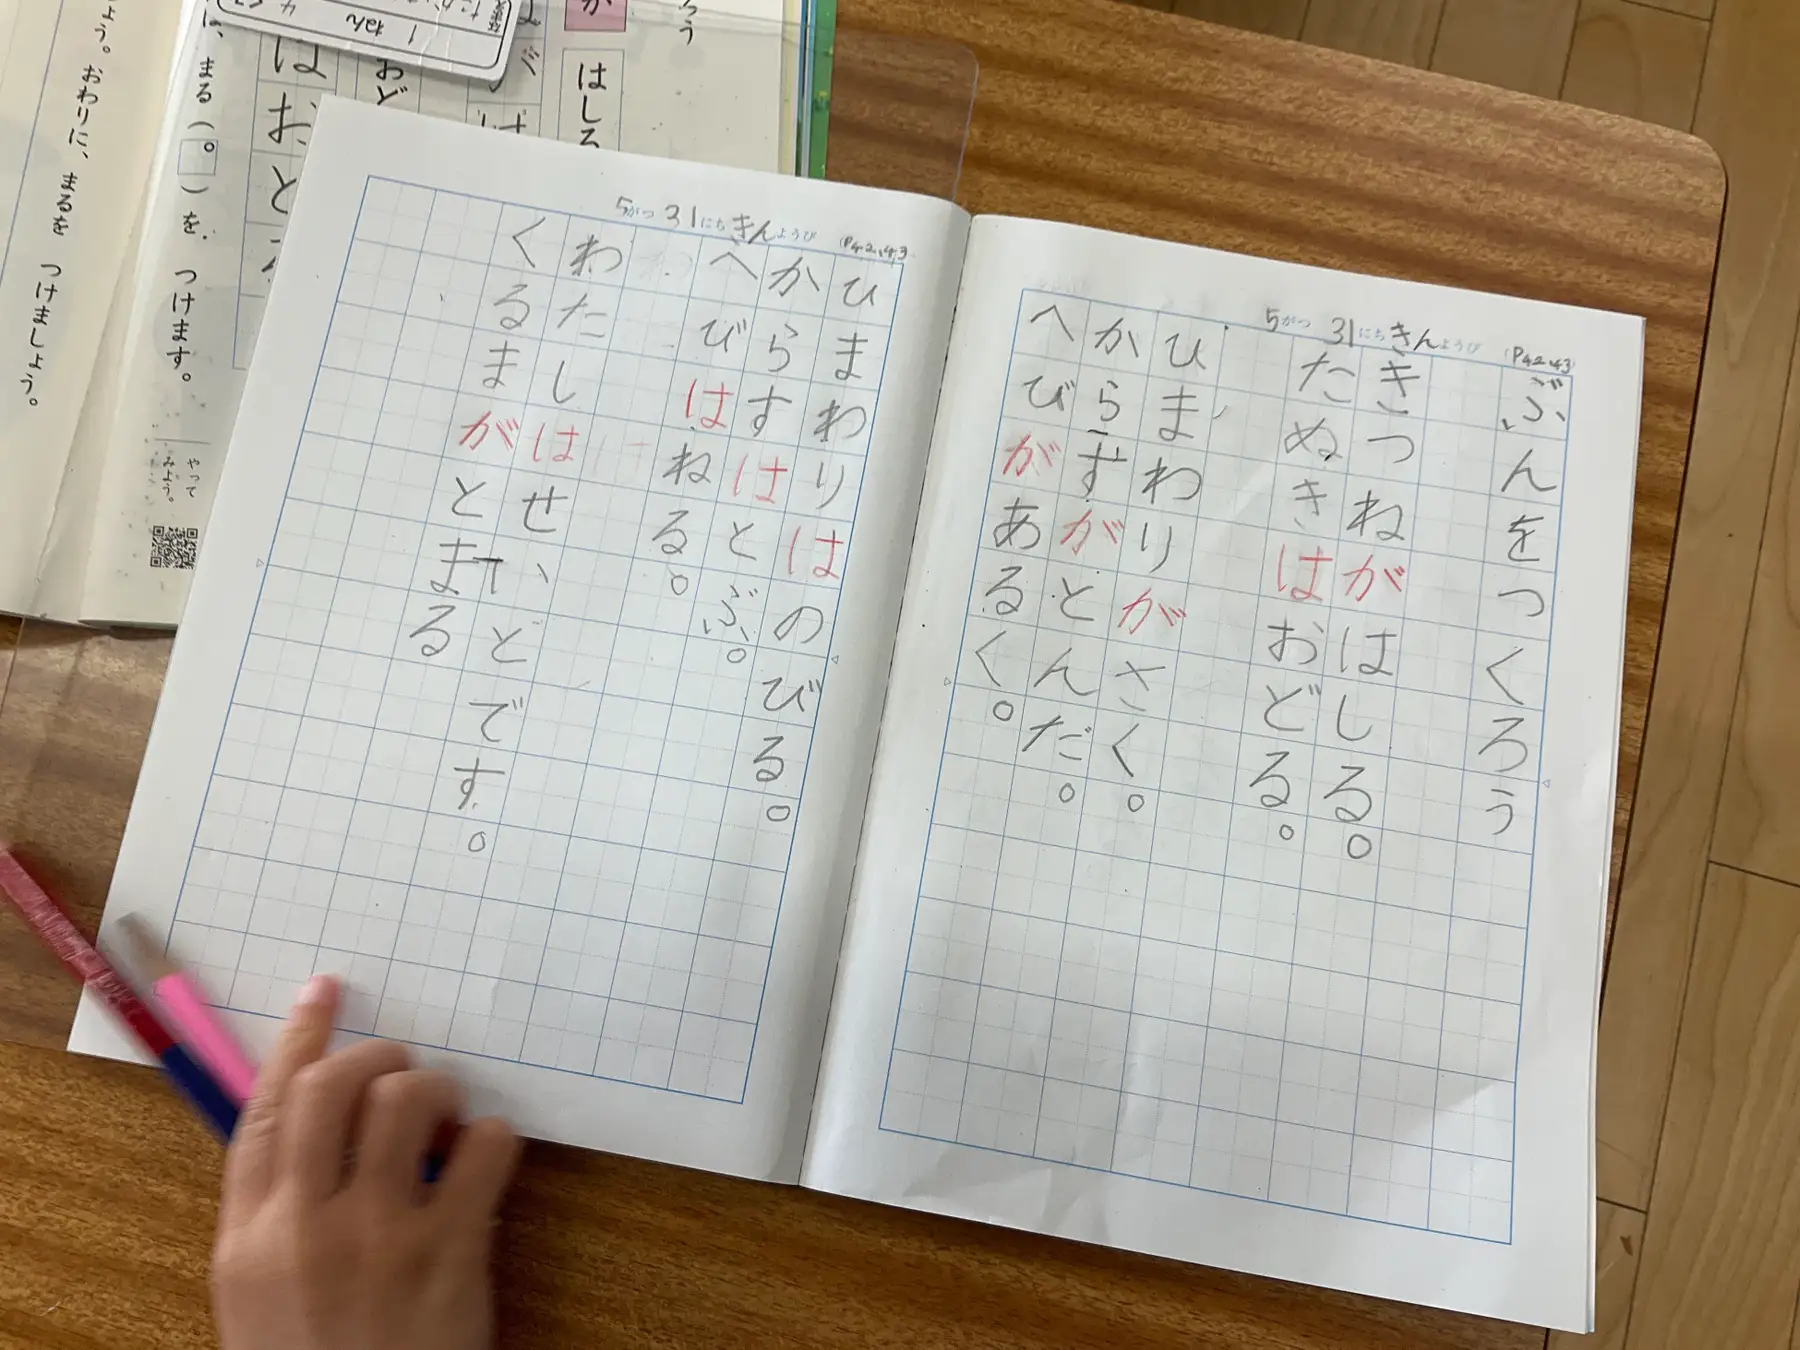 5がつ 31にち きんようび (P42、43)
ぶんをつくろう
きつねがはしる。
たぬきはおどる。
ひまわりがさく。
からすがとんだ。
へびがあるく。
5がつ 31にち きんようび (P42、43)
ひまわりはのびる。
からすはとぶ。
へびはねる。
わたしはせいとです。
くるまがとまる
ろう
か
はしる
おど
はおど
1ねん
に、まる(。)を つけます。
やって
みよう。
よう。おわりに、まるを つけましょう。